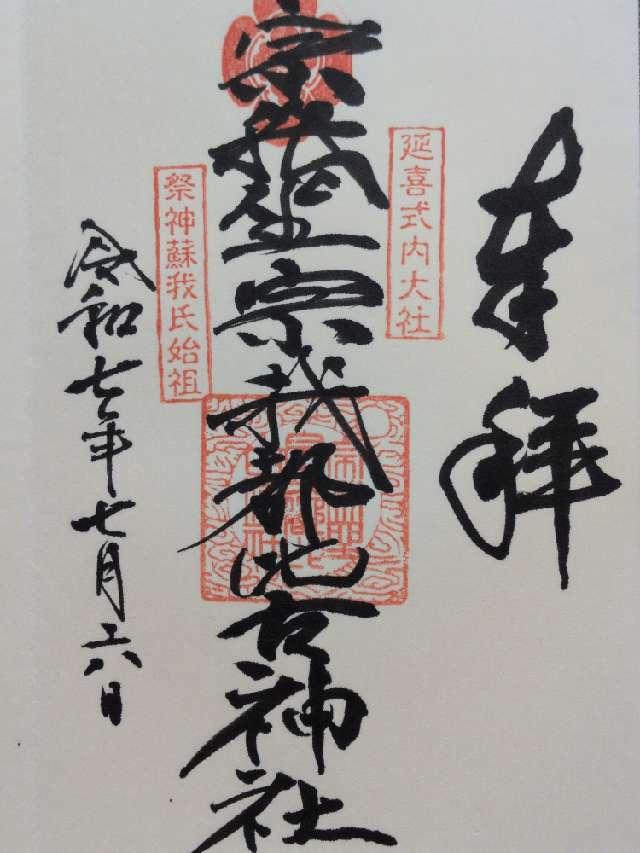 奉拝
延喜式内大社
宗我坐宗我都比古神社
祭神蘇我氏始祖
令和七年七月六日